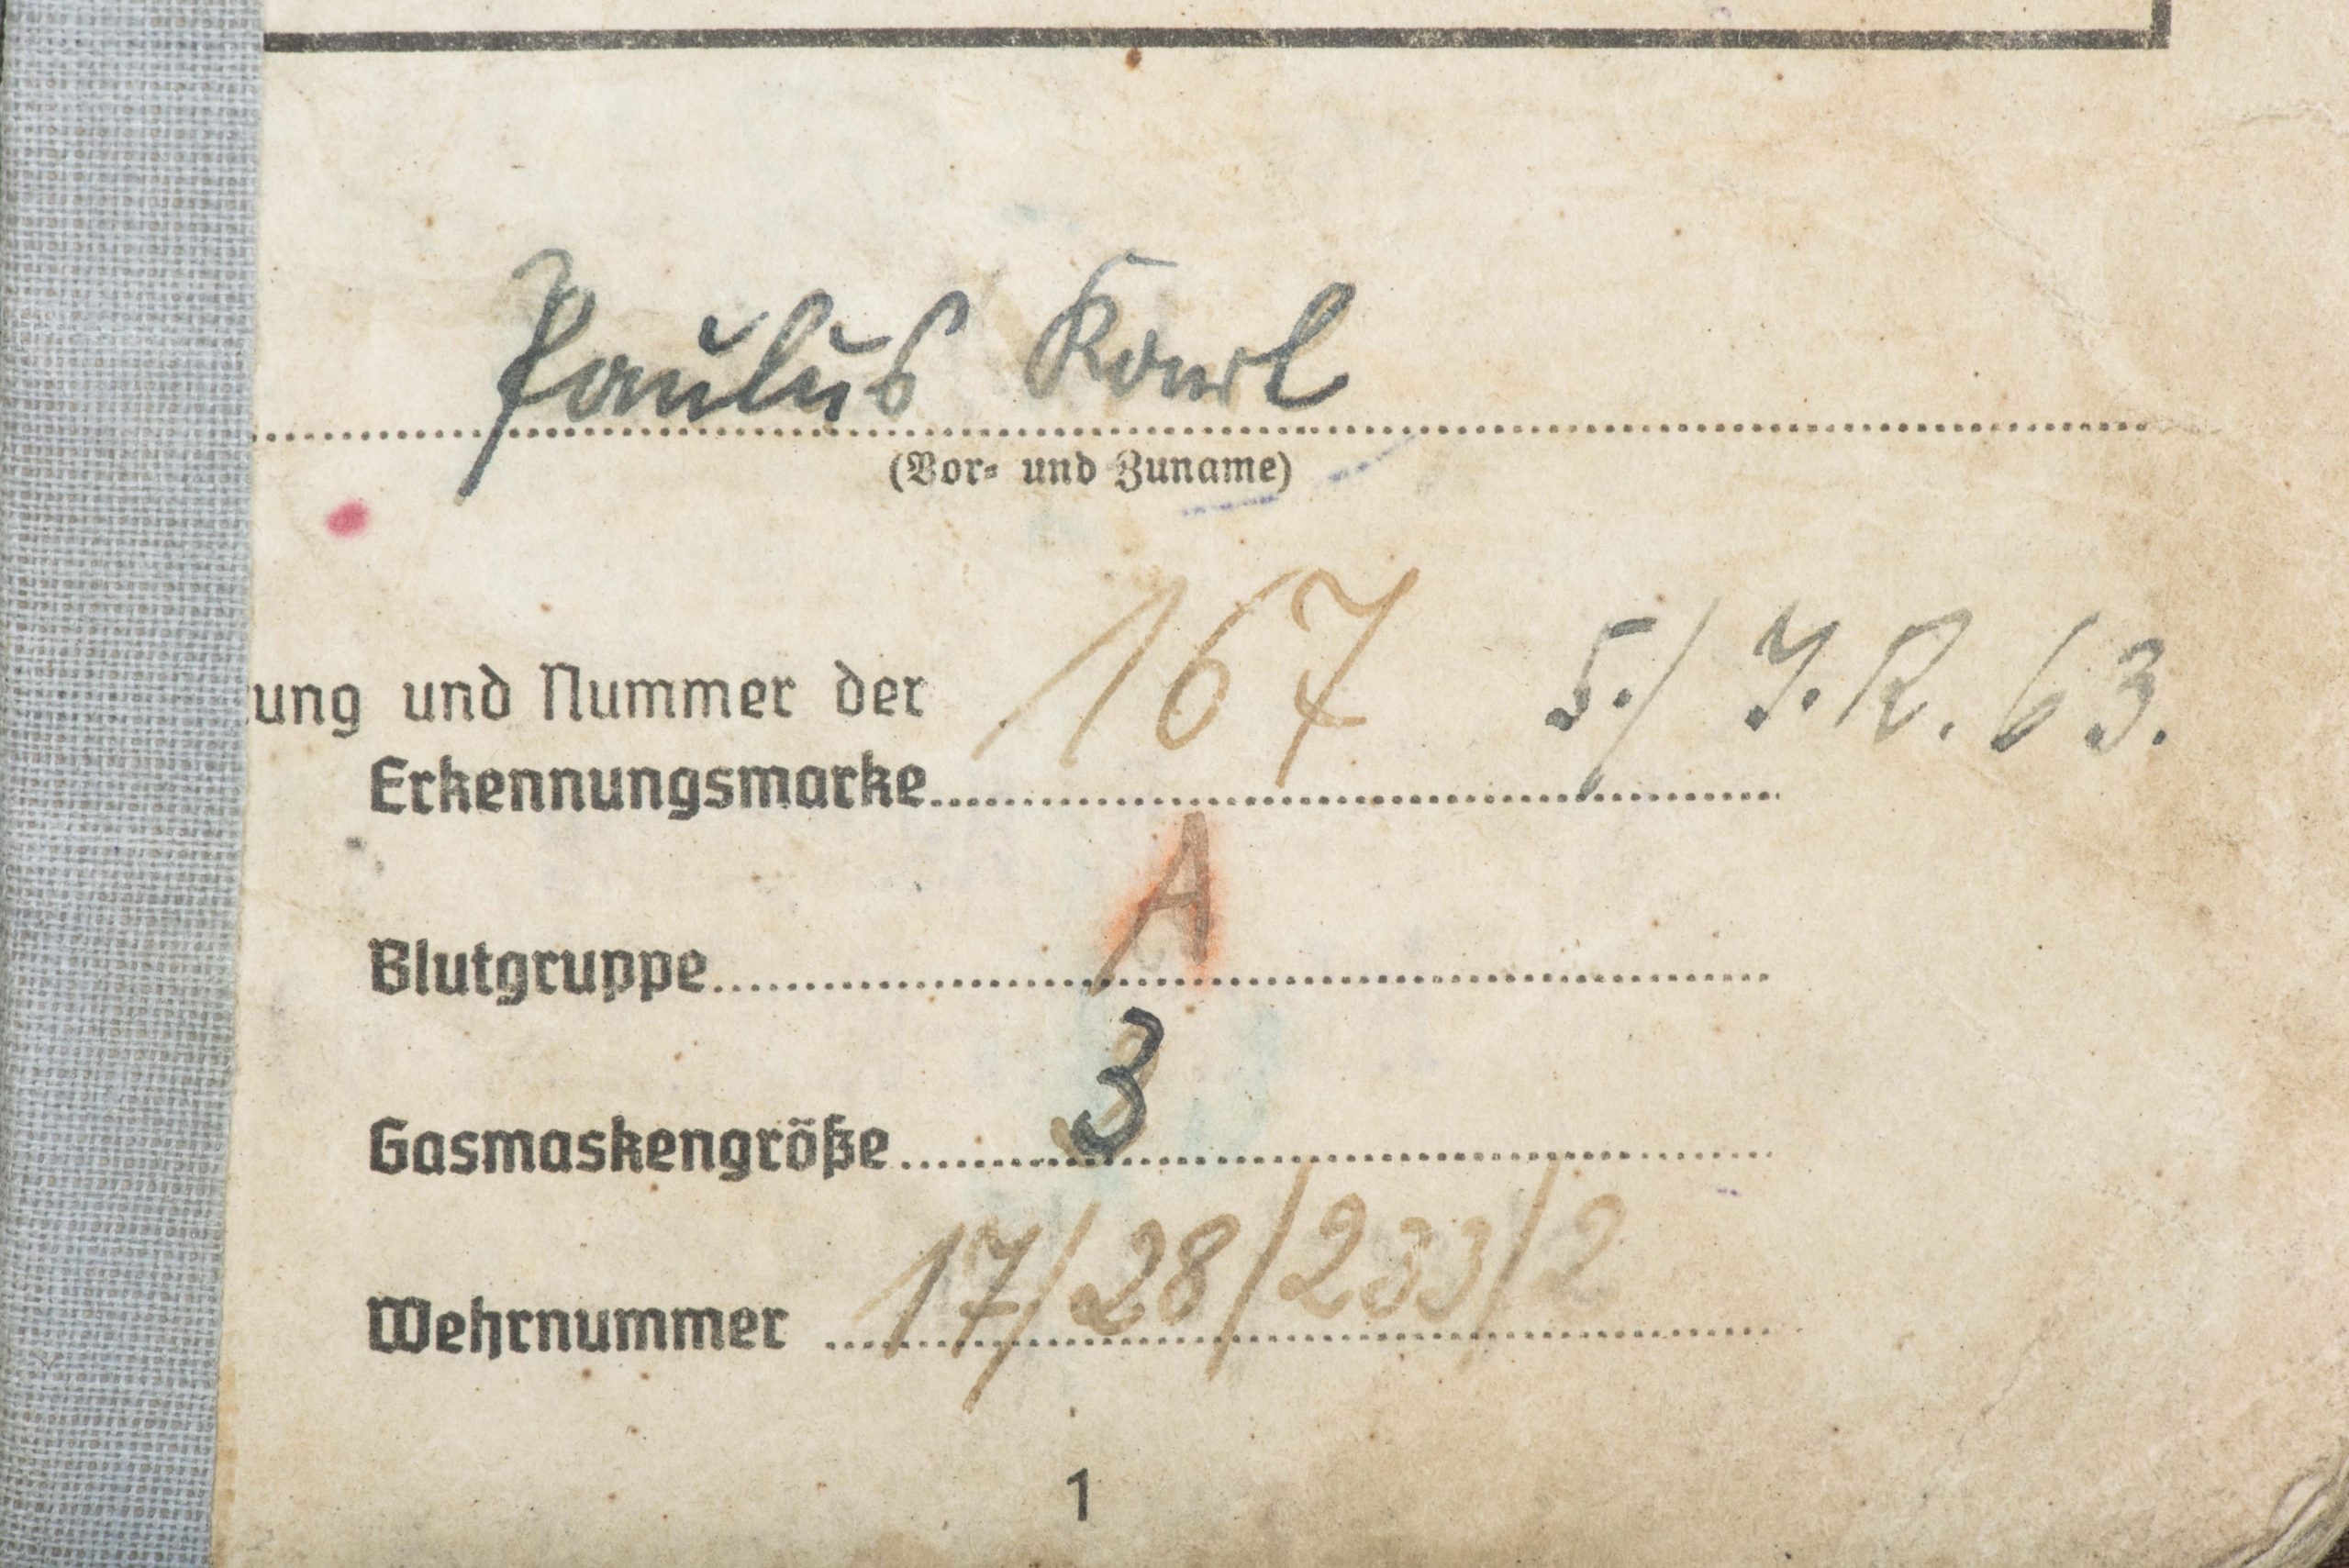 Paulus Karl
(Vor- und Zuname)
ung und Nummer der
Erkennungsmarke 167 5./ J.R. 63.
Blutgruppe A
Gasmaskengröße 3
Wehrnummer 17/28/233/2
1